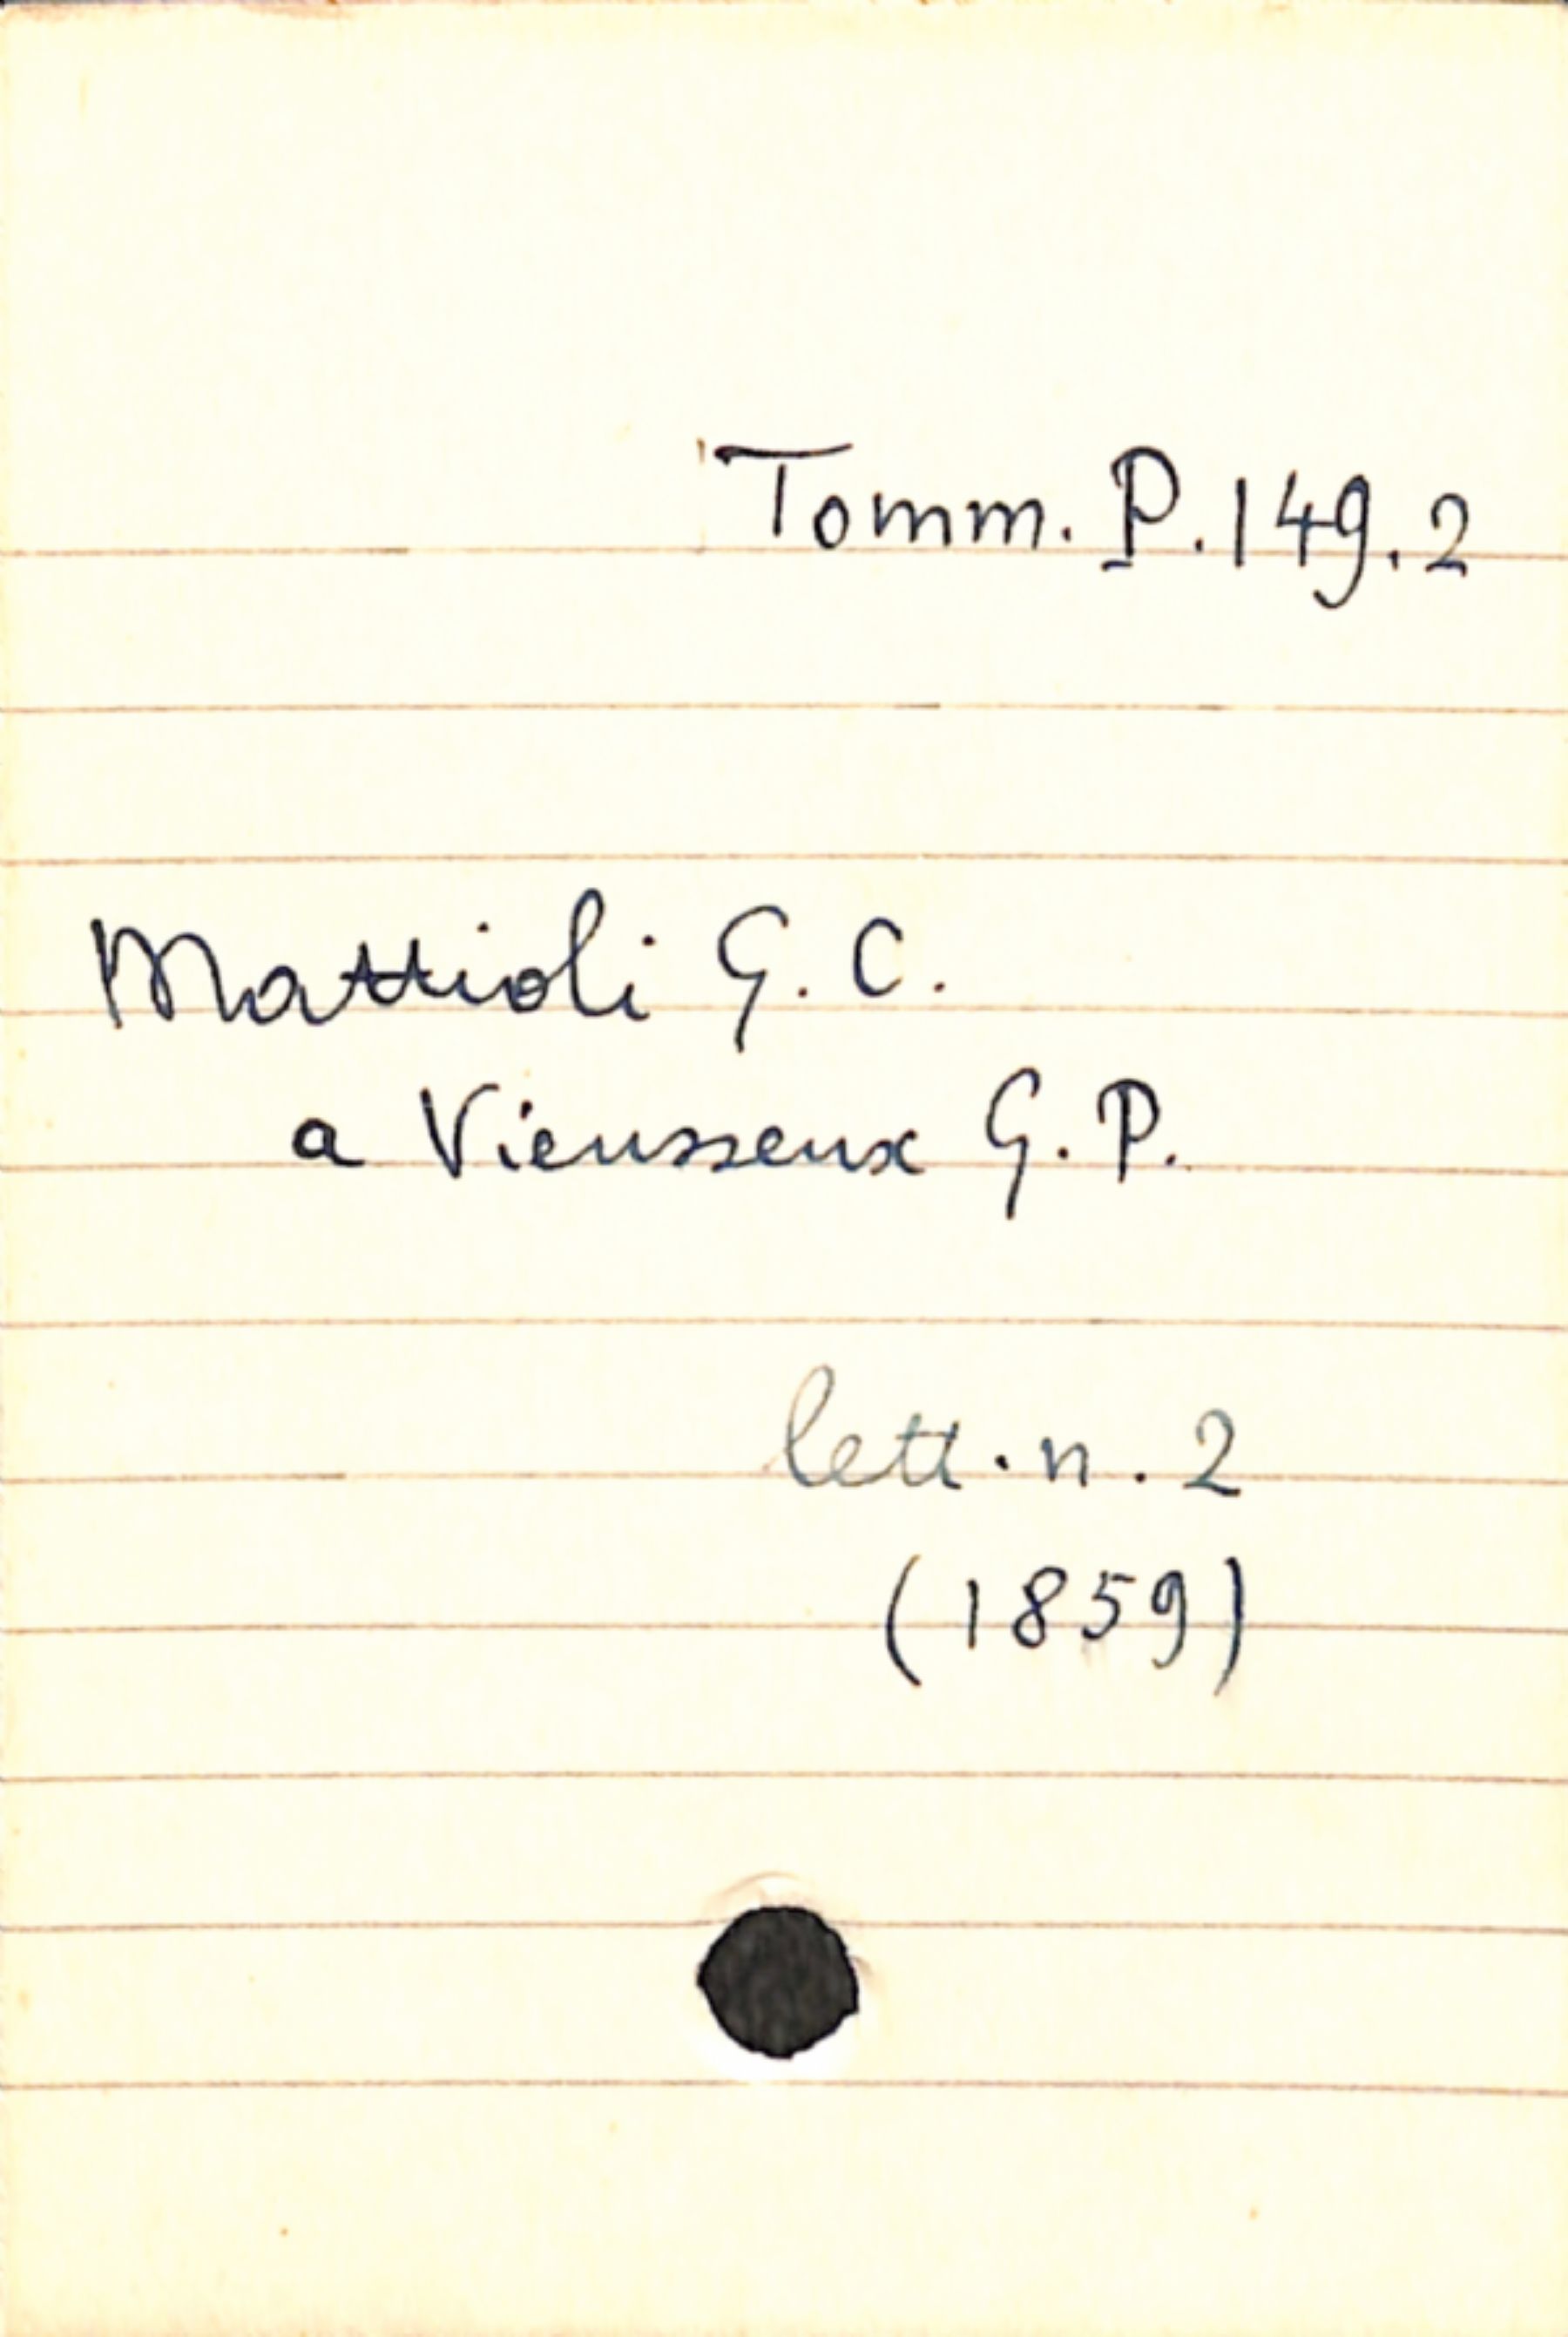 Tomm. P. 149. 2
Mattioli G. C.
a Vieusseux G. P.
lett. n. 2
(1859)